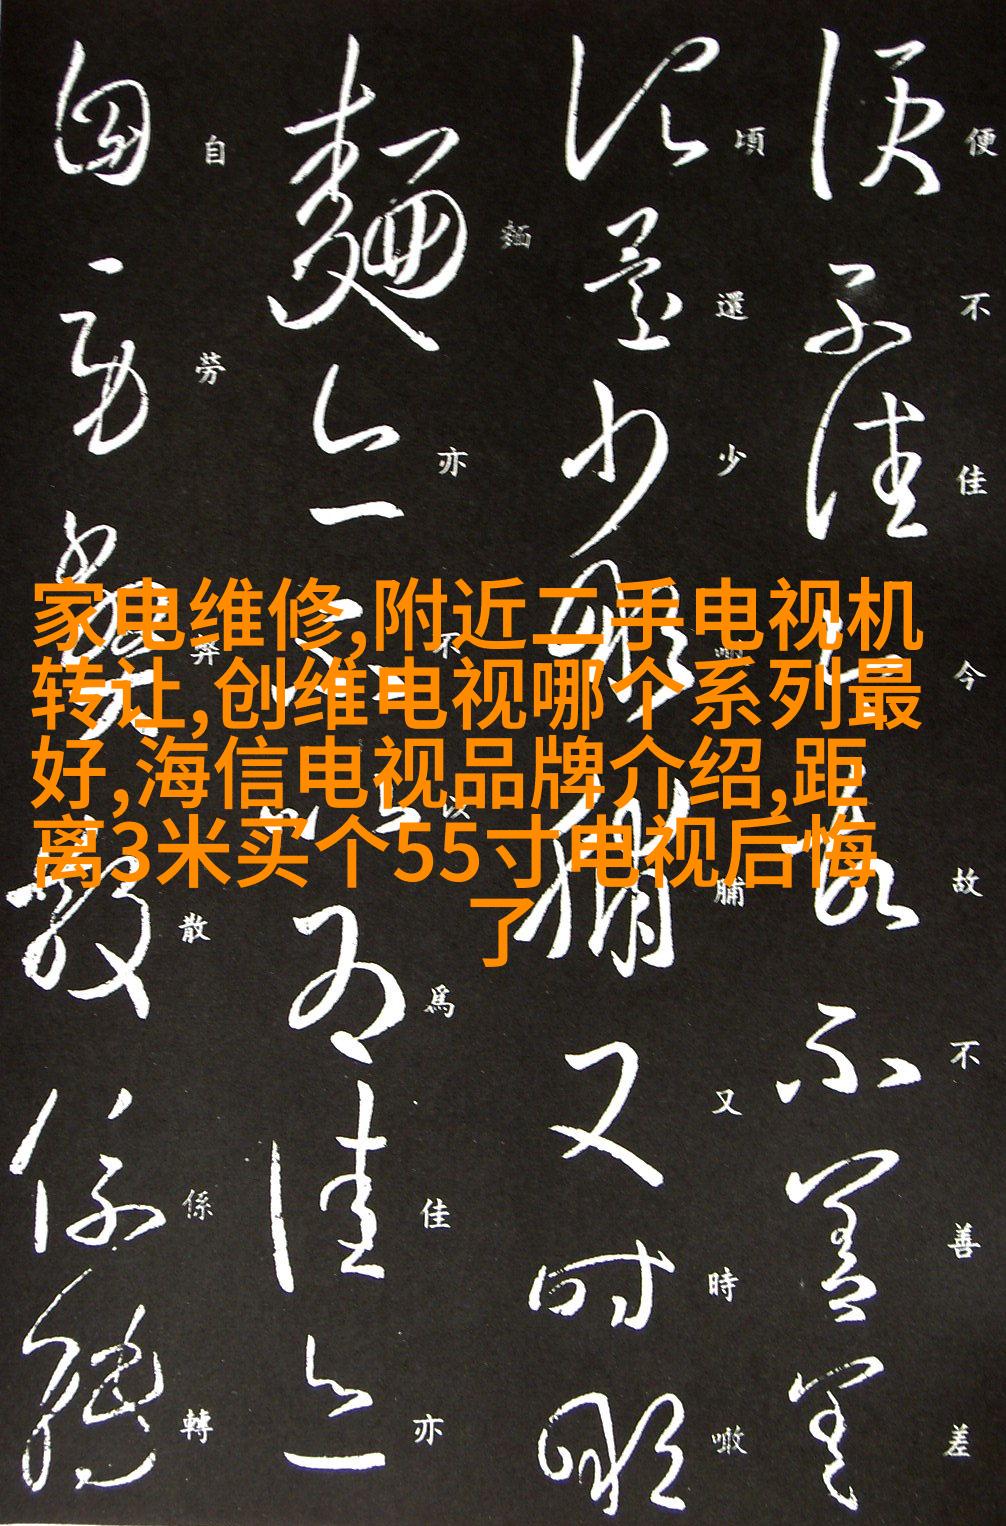 家电维修,附近二手电视机
转让,创维电视哪个系列最
好,海信电视品牌介绍,距
离3米买个55寸电视后悔
了
便不佳今故不善差
頃還少噉脯又時噉
麵亦不以為佳亦
自勞弊散係轉